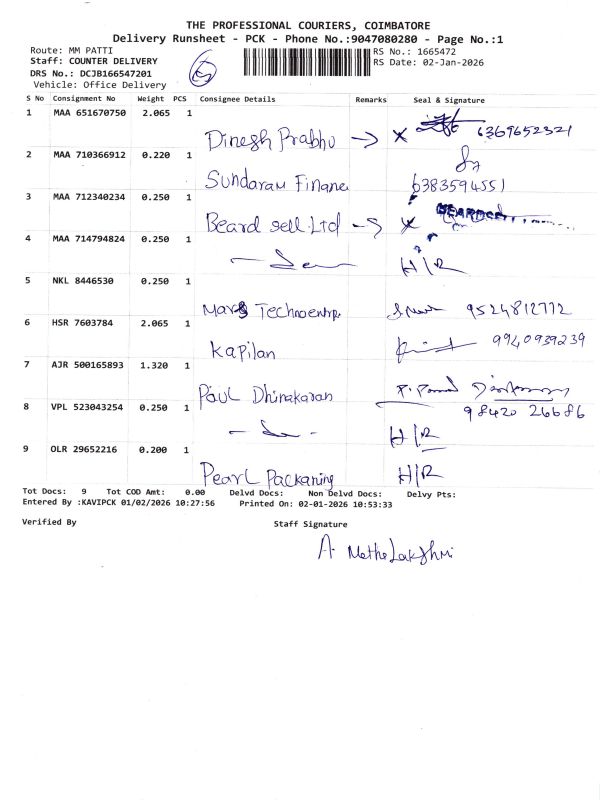 THE PROFESSIONAL COURIERS, COIMBATORE
Delivery Runsheet - PCK - Phone No.:9047080280 - Page No.:1
Route: MM PATTI
Staff: COUNTER DELIVERY
DRS No.: DCJB166547201
Vehicle: Office Delivery
5
RS No.: 1665472
RS Date: 02-Jan-2026
S No Consignment No Weight PCS Consignee Details Remarks Seal & Signature
1 MAA 651670750 2.065 1
Dinesh Prabhu → x 6369652321
2 MAA 710366912 0.220 1
Sundaram Finane 6383594551
3 MAA 712340234 0.250 1
Beard sell.Ltd → x BEARDSELL
4 MAA 714794824 0.250 1
H/R
5 NKL 8446530 0.250 1
Mars Technoentrp 9524812772
6 HSR 7603784 2.065 1
Kapilan 9940939239
7 AJR 500165893 1.320 1
Paul Dhinakaran
98420 26686
8 VPL 523043254 0.250 1
H/R
9 OLR 29652216 0.200 1
Pearl Packaning H/R
Tot Docs: 9 Tot COD Amt: 0.00 Delvd Docs: Non Delvd Docs: Delvy Pts:
Entered By :KAVIPCK 01/02/2026 10:27:56 Printed On: 02-01-2026 10:53:33
Verified By Staff Signature
A. MetheLakshmi